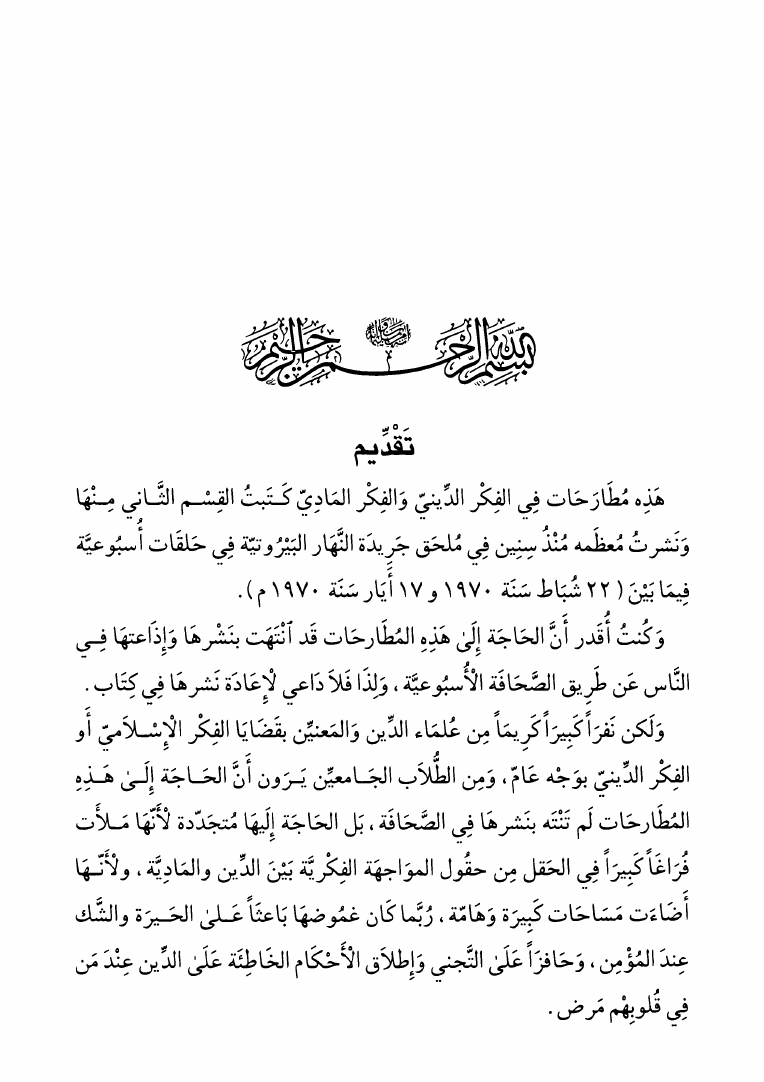 بسم الله الرحمن الرحيم
تَقْدِّيم
هَذِه مُطَارَحَات فِي الفِكْر الدِّينيّ وَالفِكْر المَادِيّ كَـتَبتُ القِسْـم الثَّـاني مِـنْهَا
وَنَشرتُ مُعظَمه مُنْذُ سِنِين فِي مُلحَق جَرِيدَة النَّهَار البَيْرُوتيّة فِي حَلقَات أُسبُوعيَّة
فِيمَا بَيْنَ ( ٢٢ شُبَاط سَنَة ١٩٧٠ و ١٧ أَيَار سَنَة ١٩٧٠ م ) .
وَكُنتُ أُقَدر أَنَّ الحَاجَة إِلَىٰ هَذِهِ المُطَارحَات قَد ٱنْتَهَت بنَشْرهَا وَإِذَاعتهَا فِـي
النَّاس عَن طَرِيق الصَّحَافَة الْأُسبُوعيَّة ، وَلِذَا فَلاَ دَاعي لْإِعَادَة نَشرهَا فِي كِتَاب .
وَلَكن نَفرَاً كَبِيرَاً كَرِيمَاً مِن عُلمَاء الدِّين وَالمَعنيِّن بقَضَايَا الفِكْر الْإِسْـلاَميّ أَو
الفِكْر الدِّينيّ بوَجْه عَامّ ، وَمِن الطُّلاَب الجَـامعيِّن يَـرَون أَنَّ الحَـاجَة إِلَـىٰ هَـذِهِ
المُطَارحَات لَم تَنْتَه بنَشرهَا فِي الصَّحَافَة ، بَل الحَاجَة إِلَيهَا مُتجَدّدة لْأَنّهَا مَـلأَت
فُرَاغَاً كَبِيرَاً فِي الحَقل مِن حقُول الموَاجهَة الفِكْريَّة بَيْنَ الدِّين والمَاديَّة ، ولْأَنَّـهَا
أَضَاءَت مَسَاحَات كَبِيرَة وَهَامّة ، رُبَّما كَان غمُوضهَا بَاعثَاً عَـلىٰ الحَـيرَة والشَّك
عِندَ المُؤْمِن ، وَحَافزَاً عَلَىٰ التَّجني وَإِطلاَق الْأَحْكَام الخَاطِئَة عَلَىٰ الدِّين عِنْدَ مَن
فِي قُلوبِهْم مَرض .